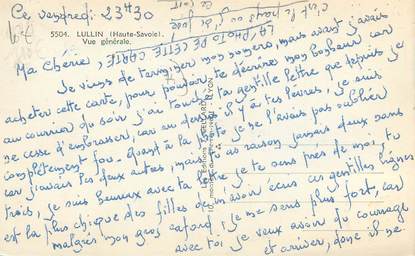 Ce vendredi 23H30
c'est le pays où je suis
LA PHOTO DE CETTE CARTE
5504. LULLIN (Haute-Savoie).
Vue générale.
Ma Chérie,
Je viens de terminer mon roman, mais avant j'avais
acheter cette carte, pour pouvoir te décrire mon bonheur car
au courrier du soir j'ai trouvé ta gentille lettre que depuis je
ne cesse d'embrasser, car au dos il y a tes lèvres, je suis
complètement fou. Quant à la photo je ne l'avais pas oublié
car j'avais les deux autres, mais tu as raison jamais deux sans
trois, je suis heureux avec ta je te sens près de moi, tu
est la plus chique des filles de m'avoir écris ces gentilles lignes
malgrès mon gros cafard, je me sens plus fort, car
avec toi je veux avoir du courage
et arriver, donc il me